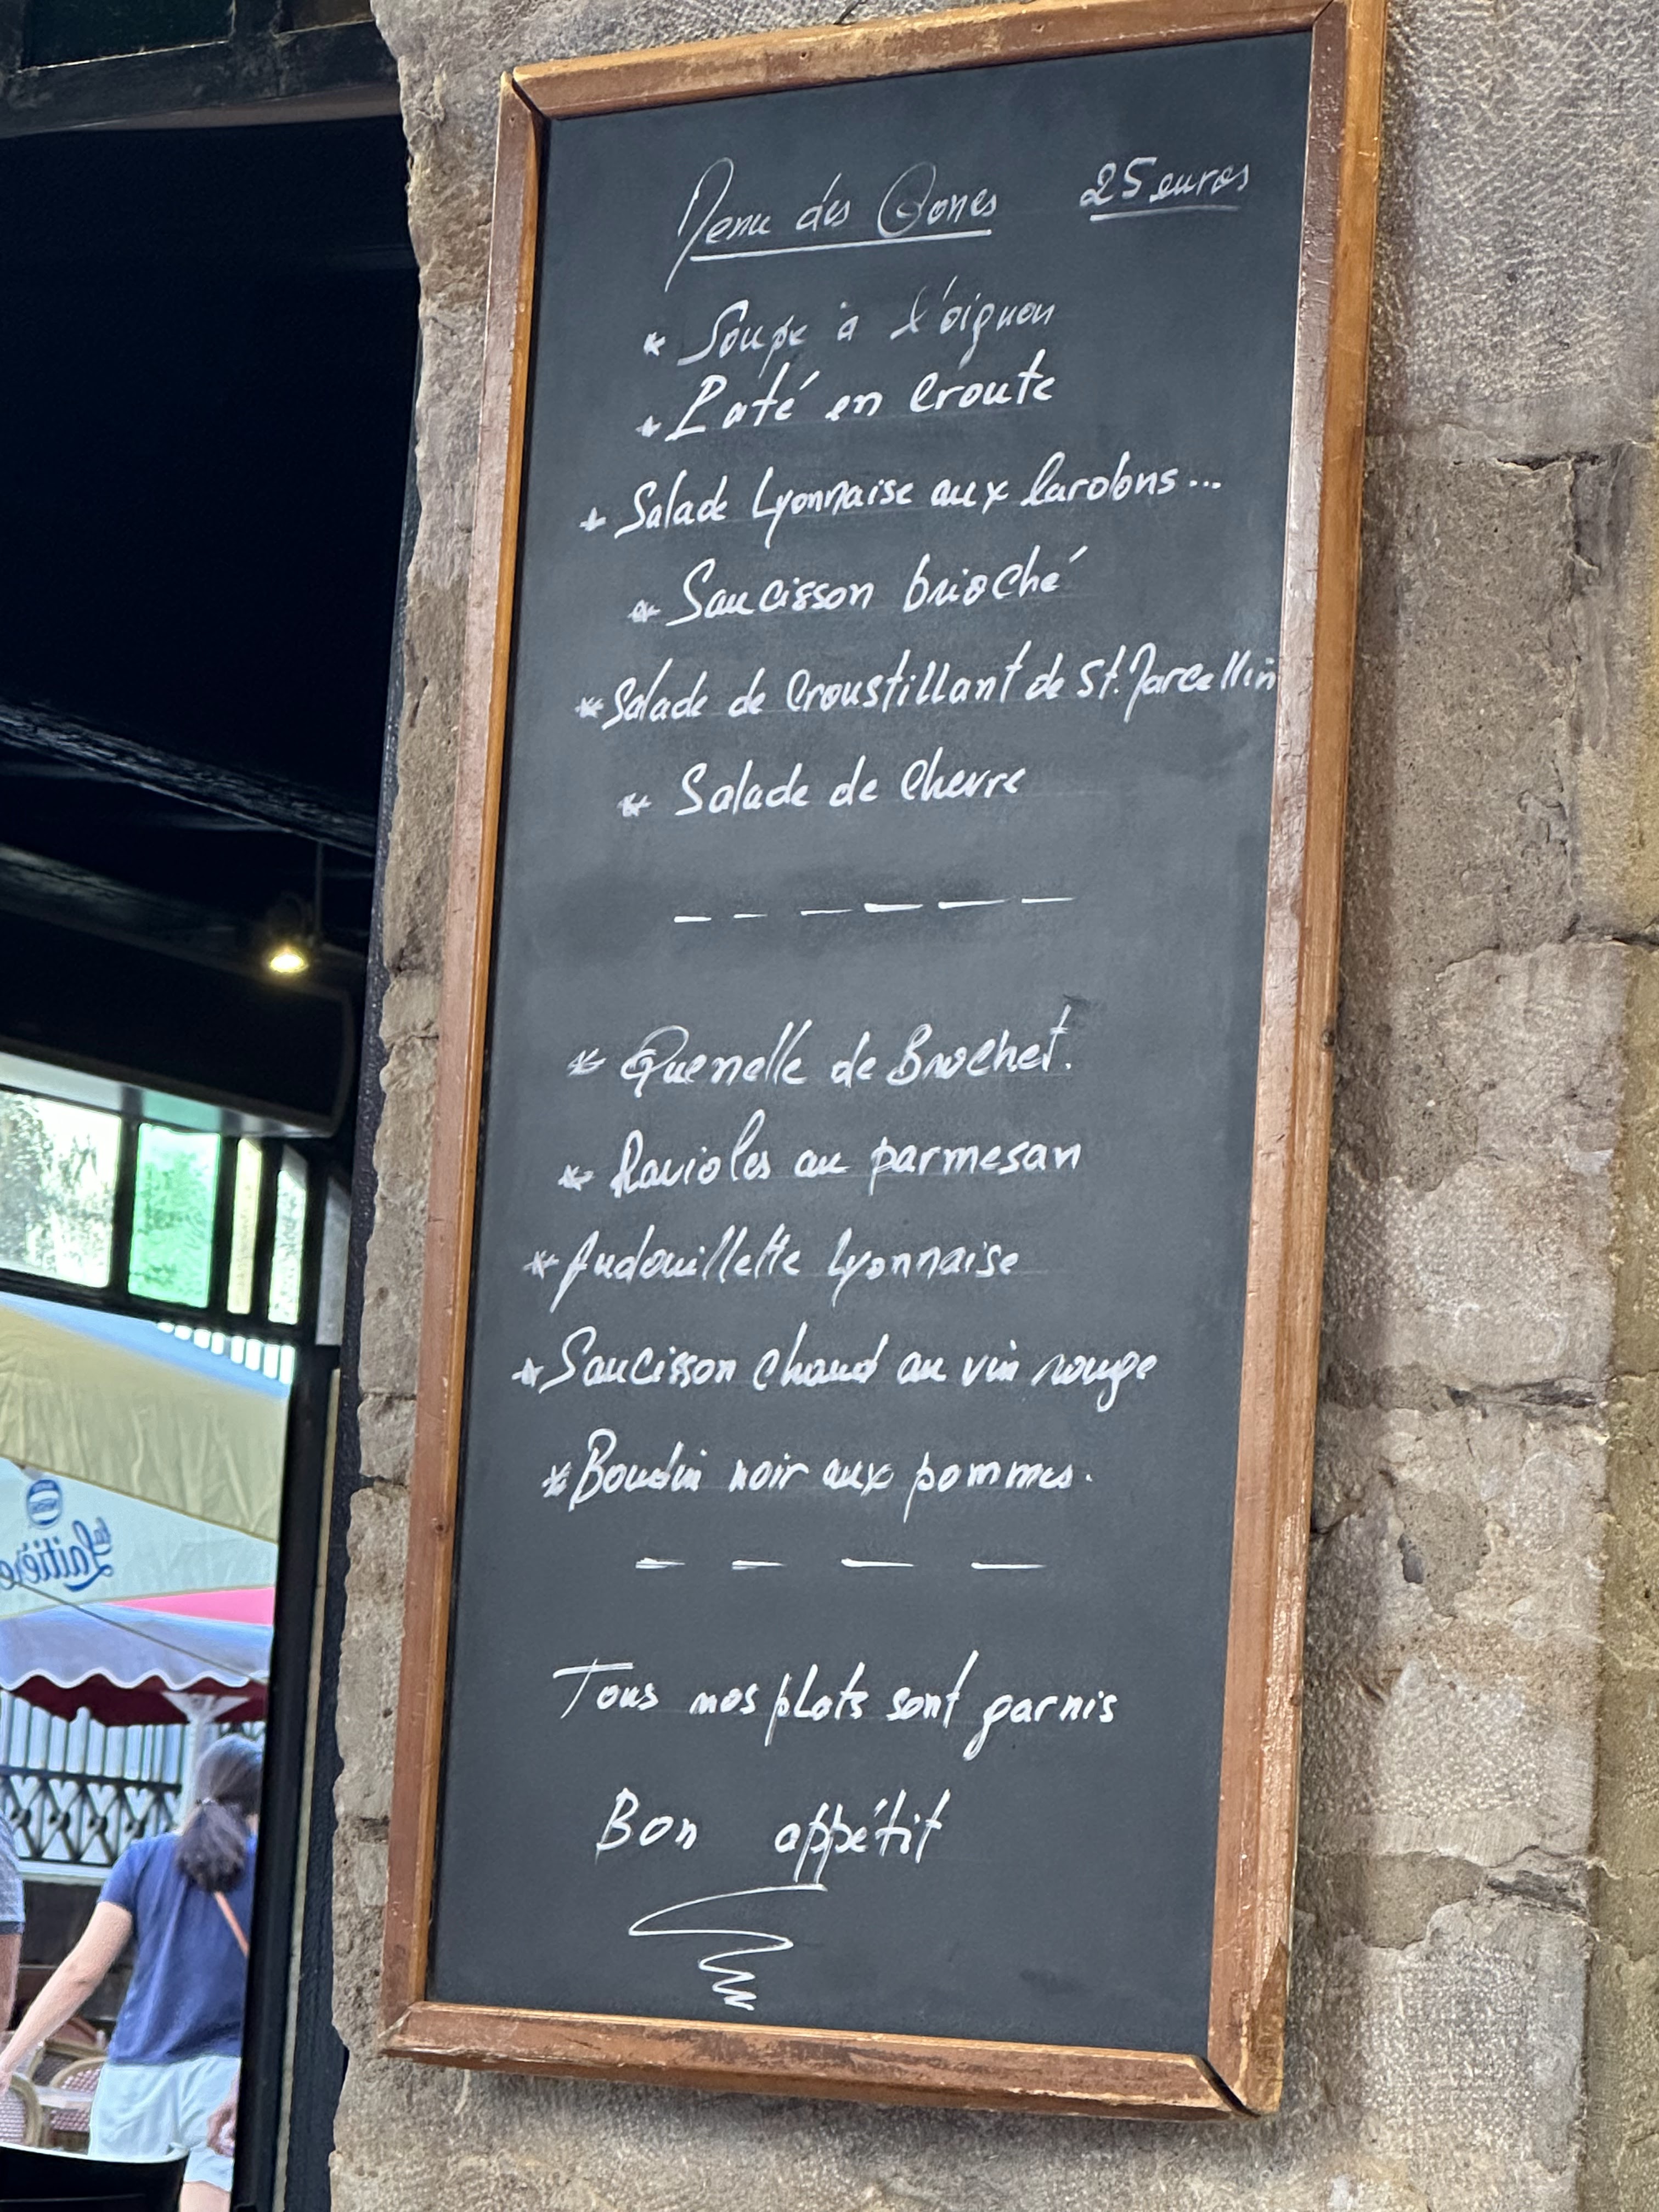 Menu des Gones 25 euros
* Soupe à l'oignon
* Paté en Croute
* Salade Lyonnaise aux lardons...
* Saucisson brioché
* Salade de Croustillant de St. Marcellin
* Salade de Chevre
* Quenelle de Brochet.
* Ravioles au parmesan
* Andouillette Lyonnaise
* Saucisson chaud au vin rouge
* Boudin noir aux pommes.
Tous nos plats sont garnis
Bon appétit
la Laitière